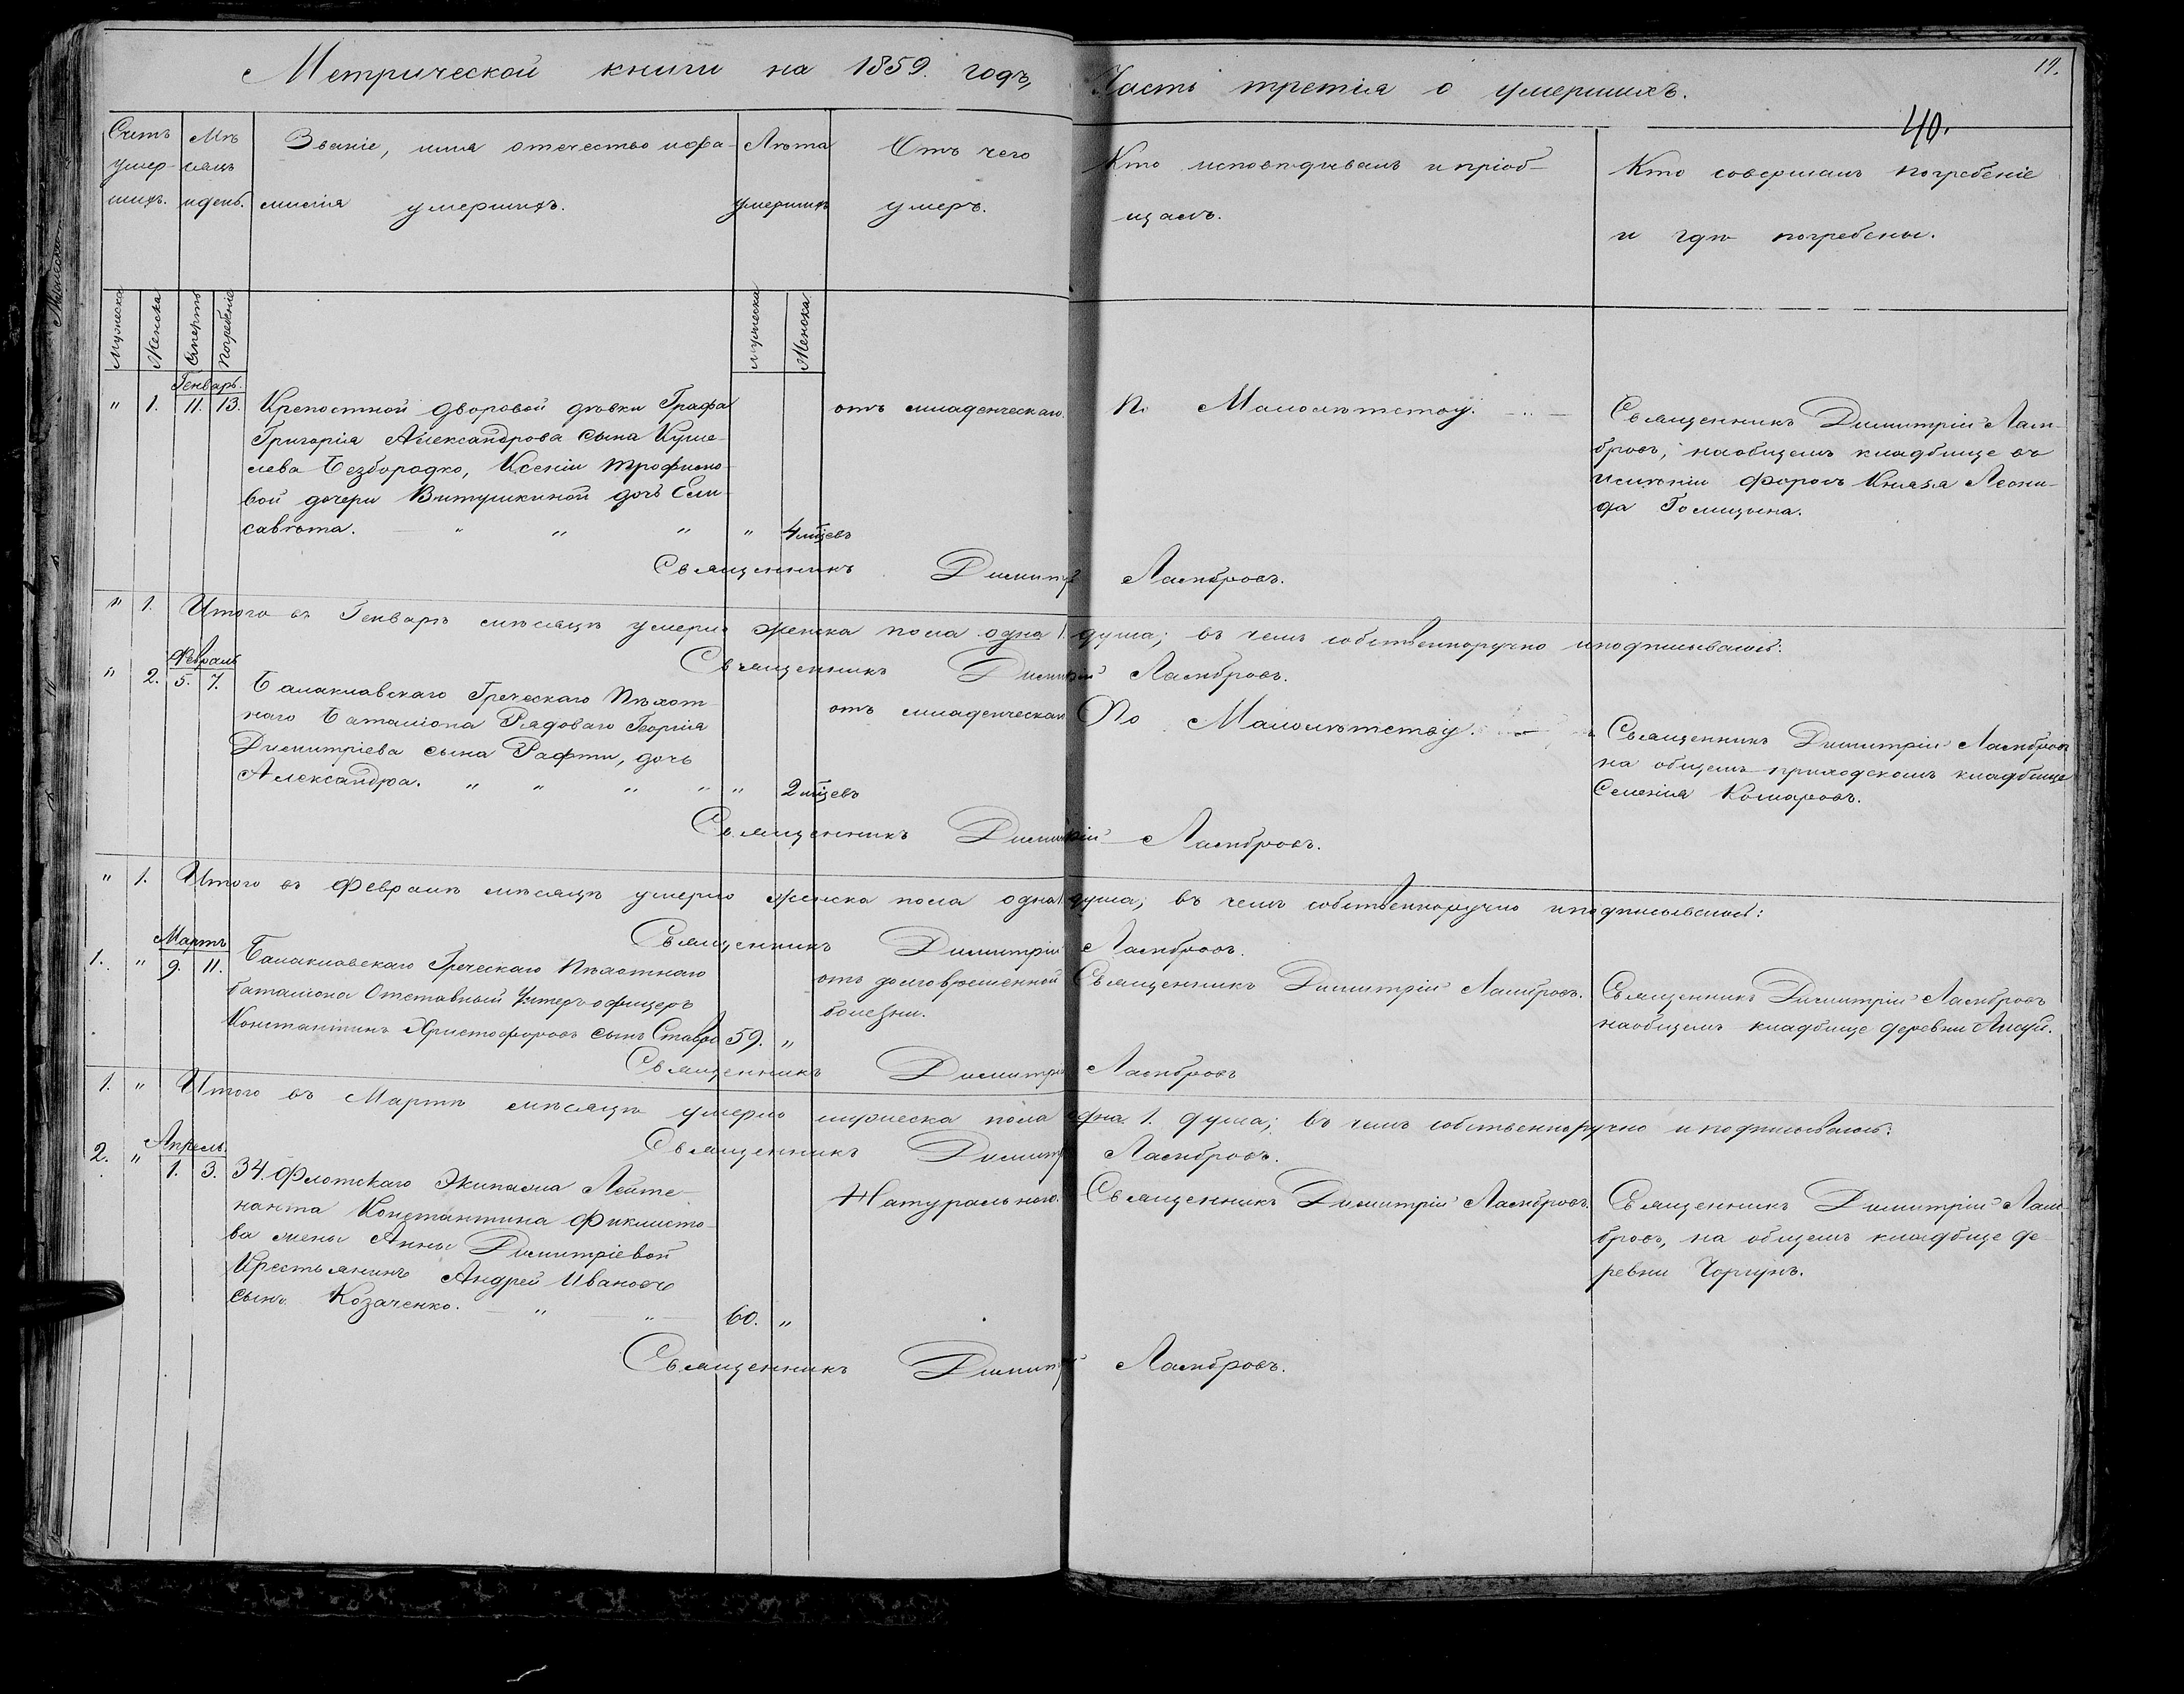 Метрической книги на 1859. годъ, Часть третія о умершихъ.
19.
40.
Счетъ умер-шихъ.
Мѣ-сяцъ и день.
Званіе, имя отечество и фа-
милія умершихъ.
Лѣта
умершихъ
Отъ чего
умеръ.
Кто исповѣдывалъ и пріоб-
щалъ.
Кто совершалъ погребеніе
и гдѣ погребены.
Мужеска
Женска
Смерть
Погребеніе
Мужеска
Женска
Генварь.
" 1. 11. 13. Крепостной дворовой дѣвки Графа
Григорія Александрова сына Куше-
лева Безбородко, Ксеніи Трофимо-
вой дочери Витушкиной дочь Ели-
савѣта. " " " " 4 мцевъ
отъ младенческаго.
По Малолѣтству.
Священникъ Димитрій Лам-
бровъ, на общемъ кладбище въ
имѣніи форосъ Князя Леони-
да Голицына.
Священникъ Димитрій Ламбровъ.
" 1. Итого въ Генварѣ мѣсяцѣ умерло женска пола одна 1. душа; въ чемъ собственноручно и подписываюсь:
Священникъ Димитрій Ламбровъ.
Февраль
" 2. 5. 7. Балаклавскаго Греческаго Пѣхот-
наго Баталіона Рядоваго Георгія
Димитріева сына Рафти, дочь
Александра. " " " " " 2 мцевъ
отъ младенческаго
По Малолѣтству.
Священникъ Димитрій Ламбровъ
на общемъ приходскомъ кладбище
Селенія Комаровъ.
Священникъ Димитрій Ламбровъ.
" 1. Итого въ Февралѣ мѣсяцѣ умерло женска пола одна 1. душа; въ чемъ собственноручно и подписываюсь:
Священникъ Димитрій Ламбровъ.
Мартъ
1. " 9. 11. Балаклавскаго Греческаго Пѣхотнаго
баталіона Отставный Унтеръ-офицеръ
Константинъ Христофоровъ сынъ Ставро 59. "
отъ долговременной
болезни.
Священникъ Димитрій Ламбровъ.
Священникъ Димитрій Ламбровъ
на общемъ кладбище деревни Аисуй.
Священникъ Димитрій Ламбровъ
1. " Итого въ Мартѣ мѣсяцѣ умерло мужеска пола одна 1. душа; въ чемъ собственноручно и подписываюсь:
Священникъ Димитрій Ламбровъ.
Апрель.
2. " 1. 3. 34. Флотскаго Экипажа Лейте-
нанта Константина Фиклисто-
ва жены Анны Димитріевой
Крестьянинъ Андрей Ивановъ
сынъ Козаченко. " " 60. "
Натуральною.
Священникъ Димитрій Ламбровъ.
Священникъ Димитрій Лам-
бровъ, на общемъ кладбище де-
ревни Чоргунъ.
Священникъ Димитрій Ламбровъ.